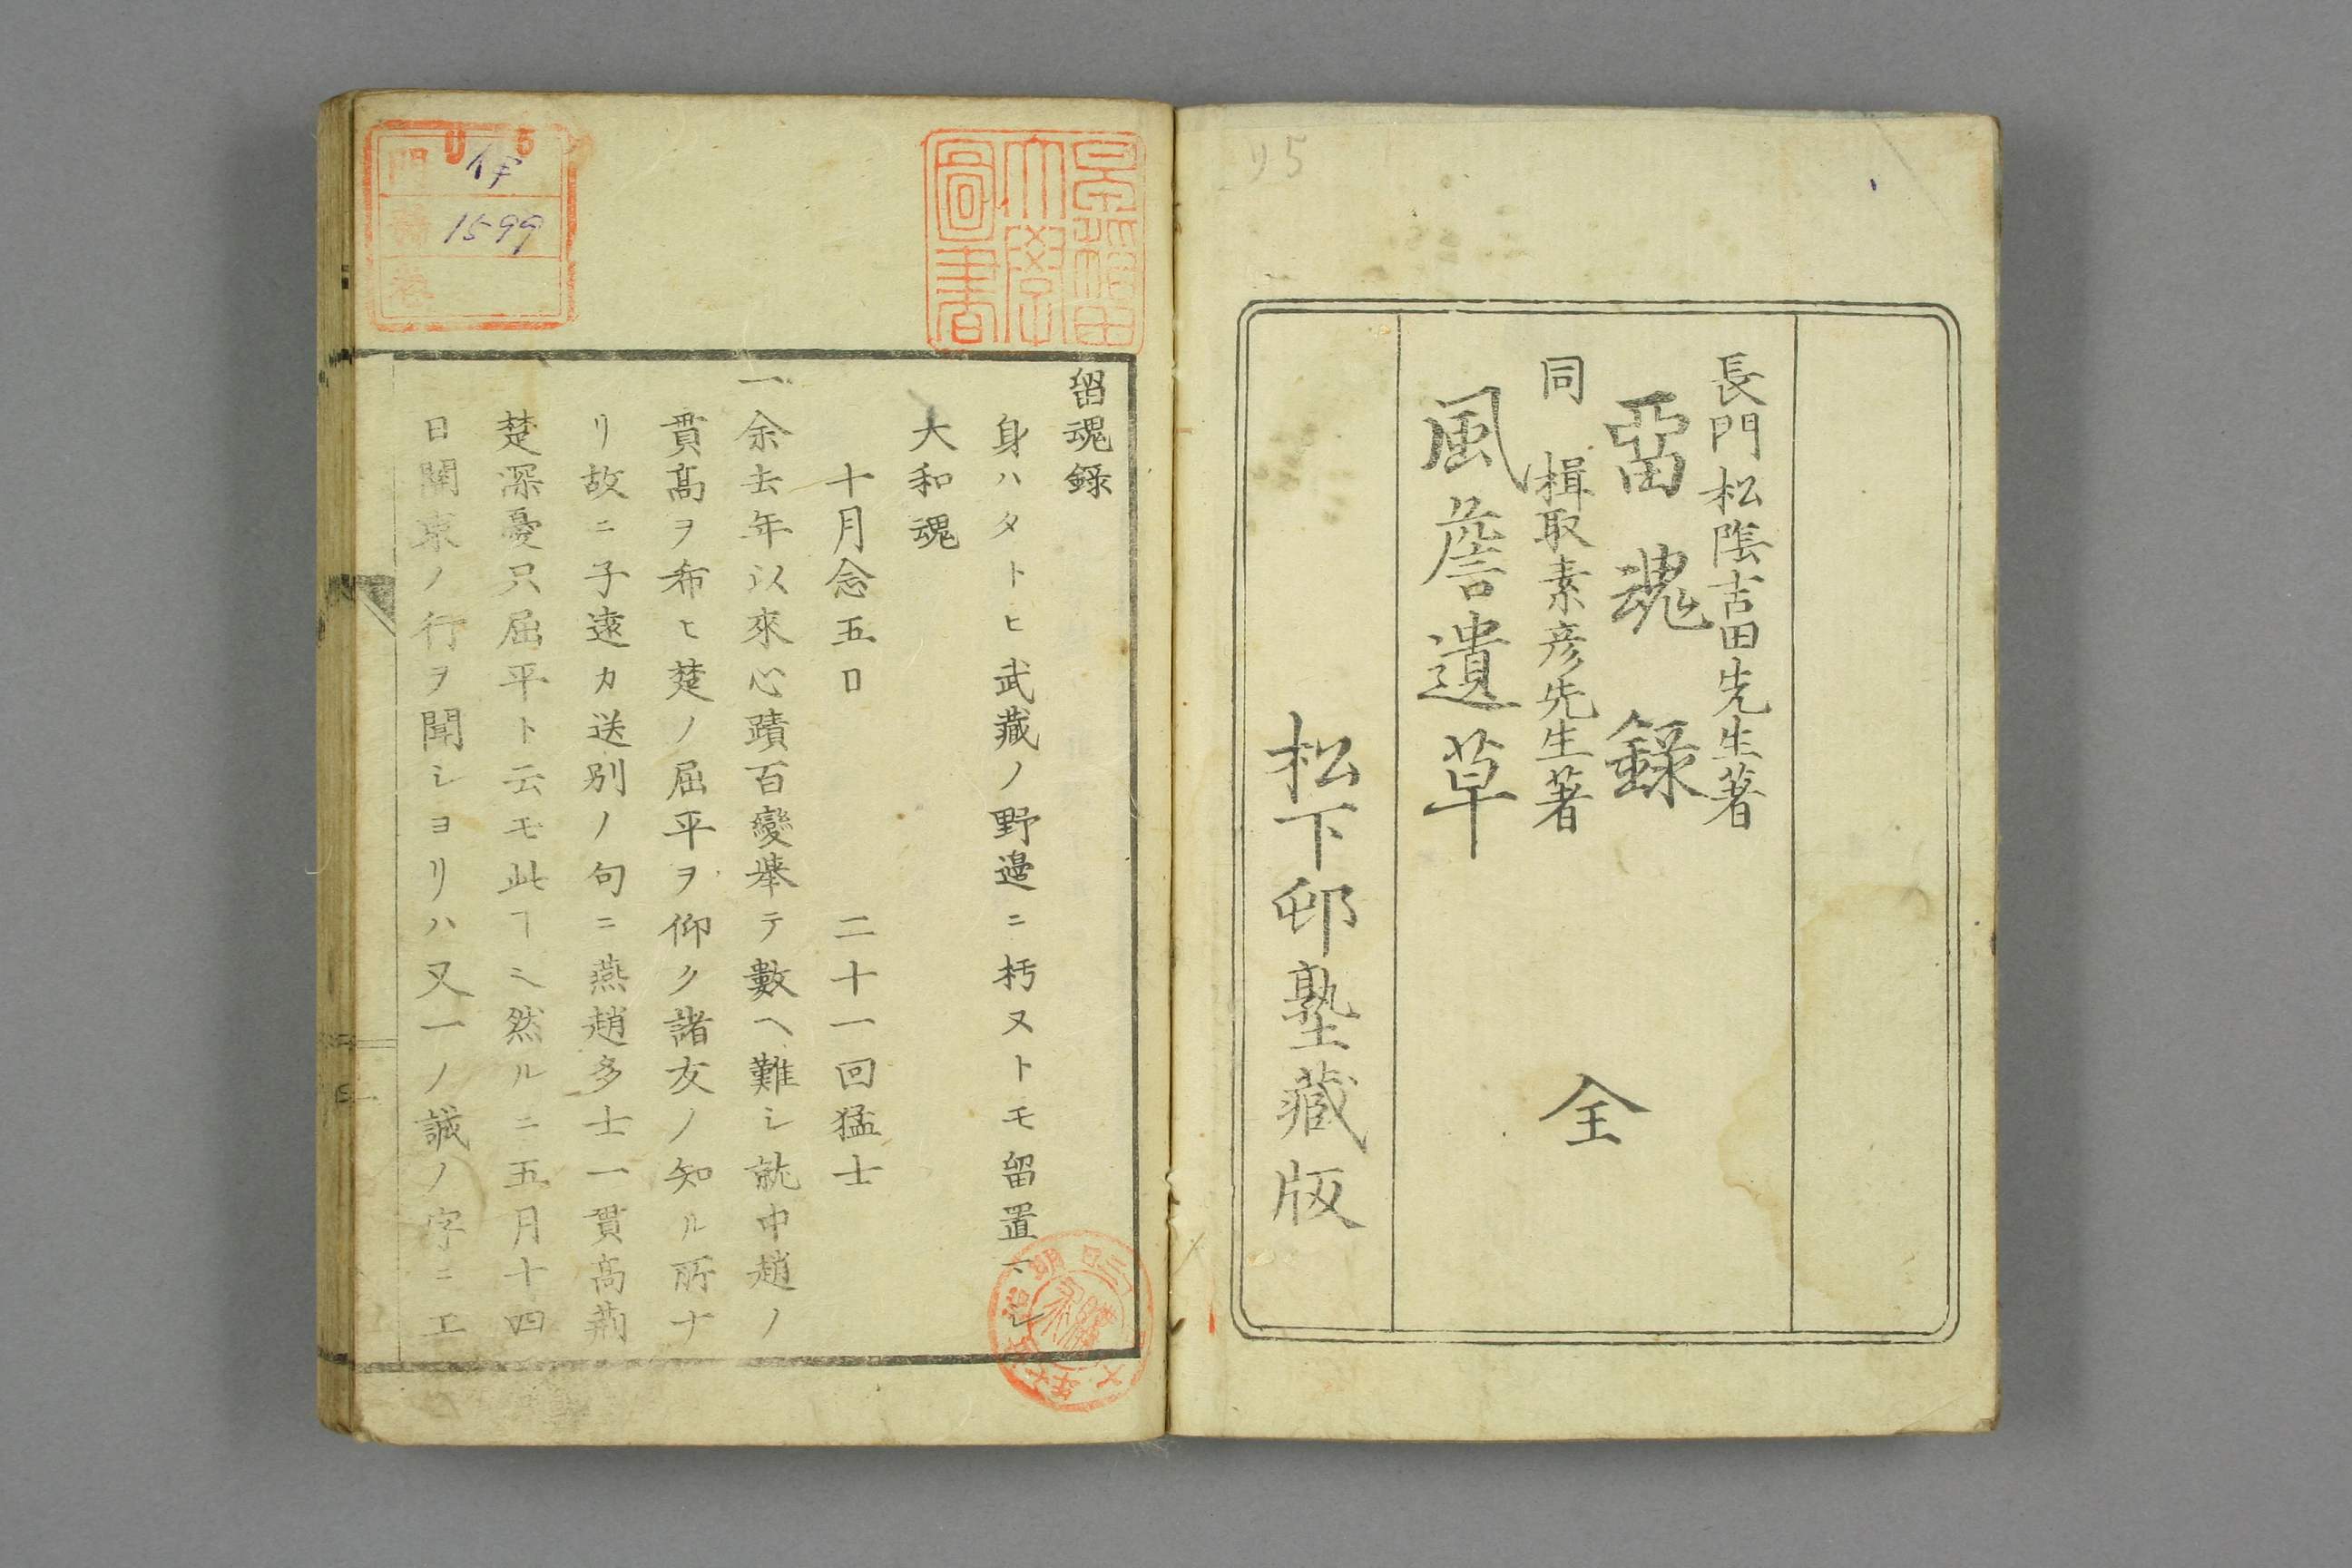 リ5
長門松陰吉田先生著
畱魂錄
同 楫取素彦先生著
風簷遺草
全
松下邨塾藏版
早稲田
大學
圖書
リ5
門
イ子
1599
卷
留魂錄
身ハタトヒ武藏ノ野邊ニ朽ヌトモ留置マシ
大和魂
十月念五日 二十一回猛士
一余去年以來心蹟百變舉テ數ヘ難シ就中趙ノ
貫高ヲ希ヒ楚ノ屈平ヲ仰ク諸友ノ知ル所ナ
リ故ニ子遠カ送別ノ句ニ燕趙多士一貫高荊
楚深憂只屈平ト云モ此ヿニ然ルニ五月十四
日關東ノ行ヲ聞シヨリハ又一ノ誠ノ字ニ工